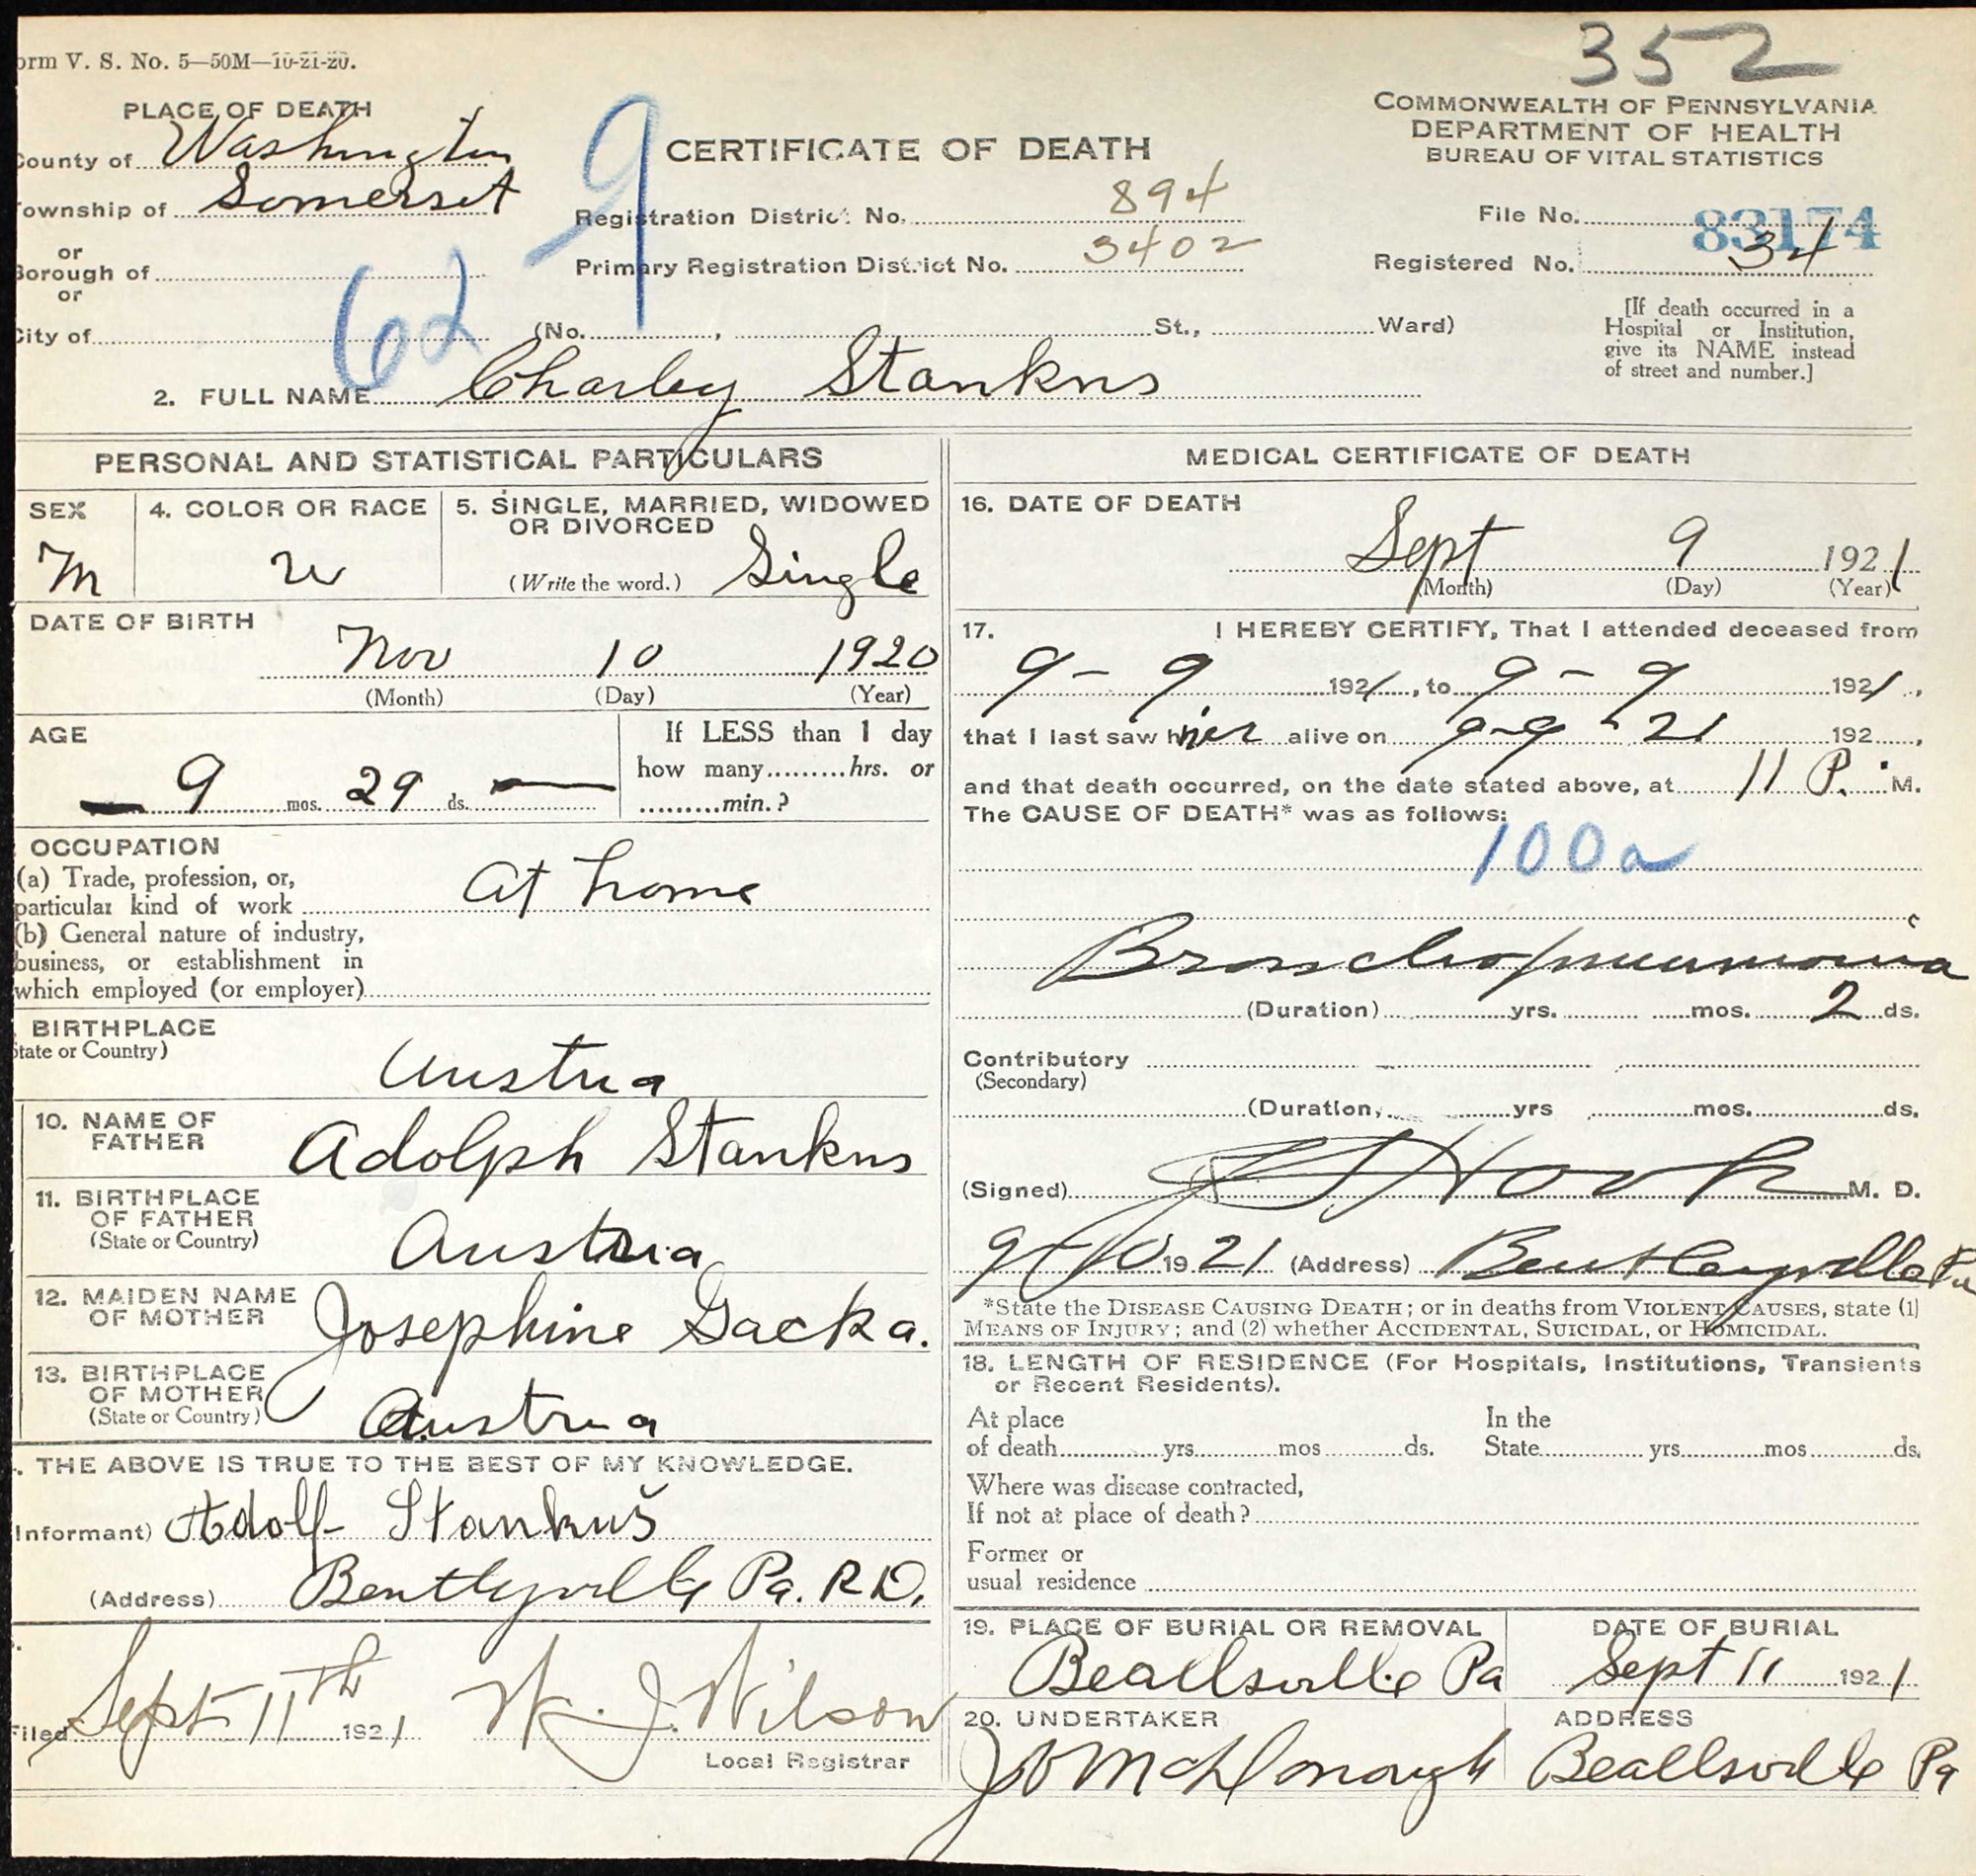 352
orm V. S. No. 5—50M—10-21-20.
PLACE OF DEATH
County of Washington
Township of Somerset
or
Borough of
or
City of
62
9
CERTIFICATE OF DEATH
Registration District No. 894
Primary Registration District No. 3402
(No. , St., Ward)
COMMONWEALTH OF PENNSYLVANIA
DEPARTMENT OF HEALTH
BUREAU OF VITAL STATISTICS
File No. 83174
Registered No. 34
[If death occurred in a
Hospital or Institution,
give its NAME instead
of street and number.]
2. FULL NAME Charley Stankus
PERSONAL AND STATISTICAL PARTICULARS
SEX
M
4. COLOR OR RACE
W
5. SINGLE, MARRIED, WIDOWED
OR DIVORCED
(Write the word.) Single
DATE OF BIRTH
Nov 10 1920
(Month) (Day) (Year)
AGE
9 mos. 29 ds.
If LESS than 1 day
how many hrs. or
min.?
OCCUPATION
(a) Trade, profession, or,
particular kind of work At home
(b) General nature of industry,
business, or establishment in
which employed (or employer)
BIRTHPLACE
State or Country)
Austria
10. NAME OF
FATHER
Adolph Stankus
11. BIRTHPLACE
OF FATHER
(State or Country)
Austria
12. MAIDEN NAME
OF MOTHER
Josephine Gacka.
13. BIRTHPLACE
OF MOTHER
(State or Country)
Austria
. THE ABOVE IS TRUE TO THE BEST OF MY KNOWLEDGE.
Informant) Adolf Stankuš
(Address) Bentleyville Pa. R D.
Filed Sept 11th 1921 W. J. Wilson
Local Registrar
MEDICAL CERTIFICATE OF DEATH
16. DATE OF DEATH
Sept 9 1921
(Month) (Day) (Year)
17. I HEREBY CERTIFY, That I attended deceased from
9 - 9 1921, to 9 - 9 1921,
that I last saw h alive on 9-9-21 192 ,
and that death occurred, on the date stated above, at 11 P. M.
The CAUSE OF DEATH* was as follows:
100a
Broncho pneumonia
(Duration) yrs. mos. 2 ds.
Contributory
(Secondary)
(Duration, yrs mos. ds.
(Signed) Hook M. D.
9/10 1921 (Address) Bentleyville Pa
*State the DISEASE CAUSING DEATH; or in deaths from VIOLENT CAUSES, state (1)
MEANS OF INJURY; and (2) whether ACCIDENTAL, SUICIDAL, or HOMICIDAL.
18. LENGTH OF RESIDENCE (For Hospitals, Institutions, Transients
or Recent Residents).
At place
of death yrs. mos ds.
In the
State yrs. mos ds.
Where was disease contracted,
If not at place of death?
Former or
usual residence
19. PLACE OF BURIAL OR REMOVAL
Beallsville Pa
DATE OF BURIAL
Sept 11 1921
20. UNDERTAKER
McDonough
ADDRESS
Beallsville Pa